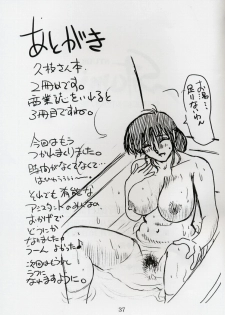 あとがき
久枝さん本
2冊目です。
3冊目ですね。
今回はもう
つかれまくりました。
時間がなくてなくて…
それでも有能な
アシスタントのみんなの
おかげで
どうにか
なりました。
次回はもう少し
ラフに
なれますように。
お湯…
足りないわん
37